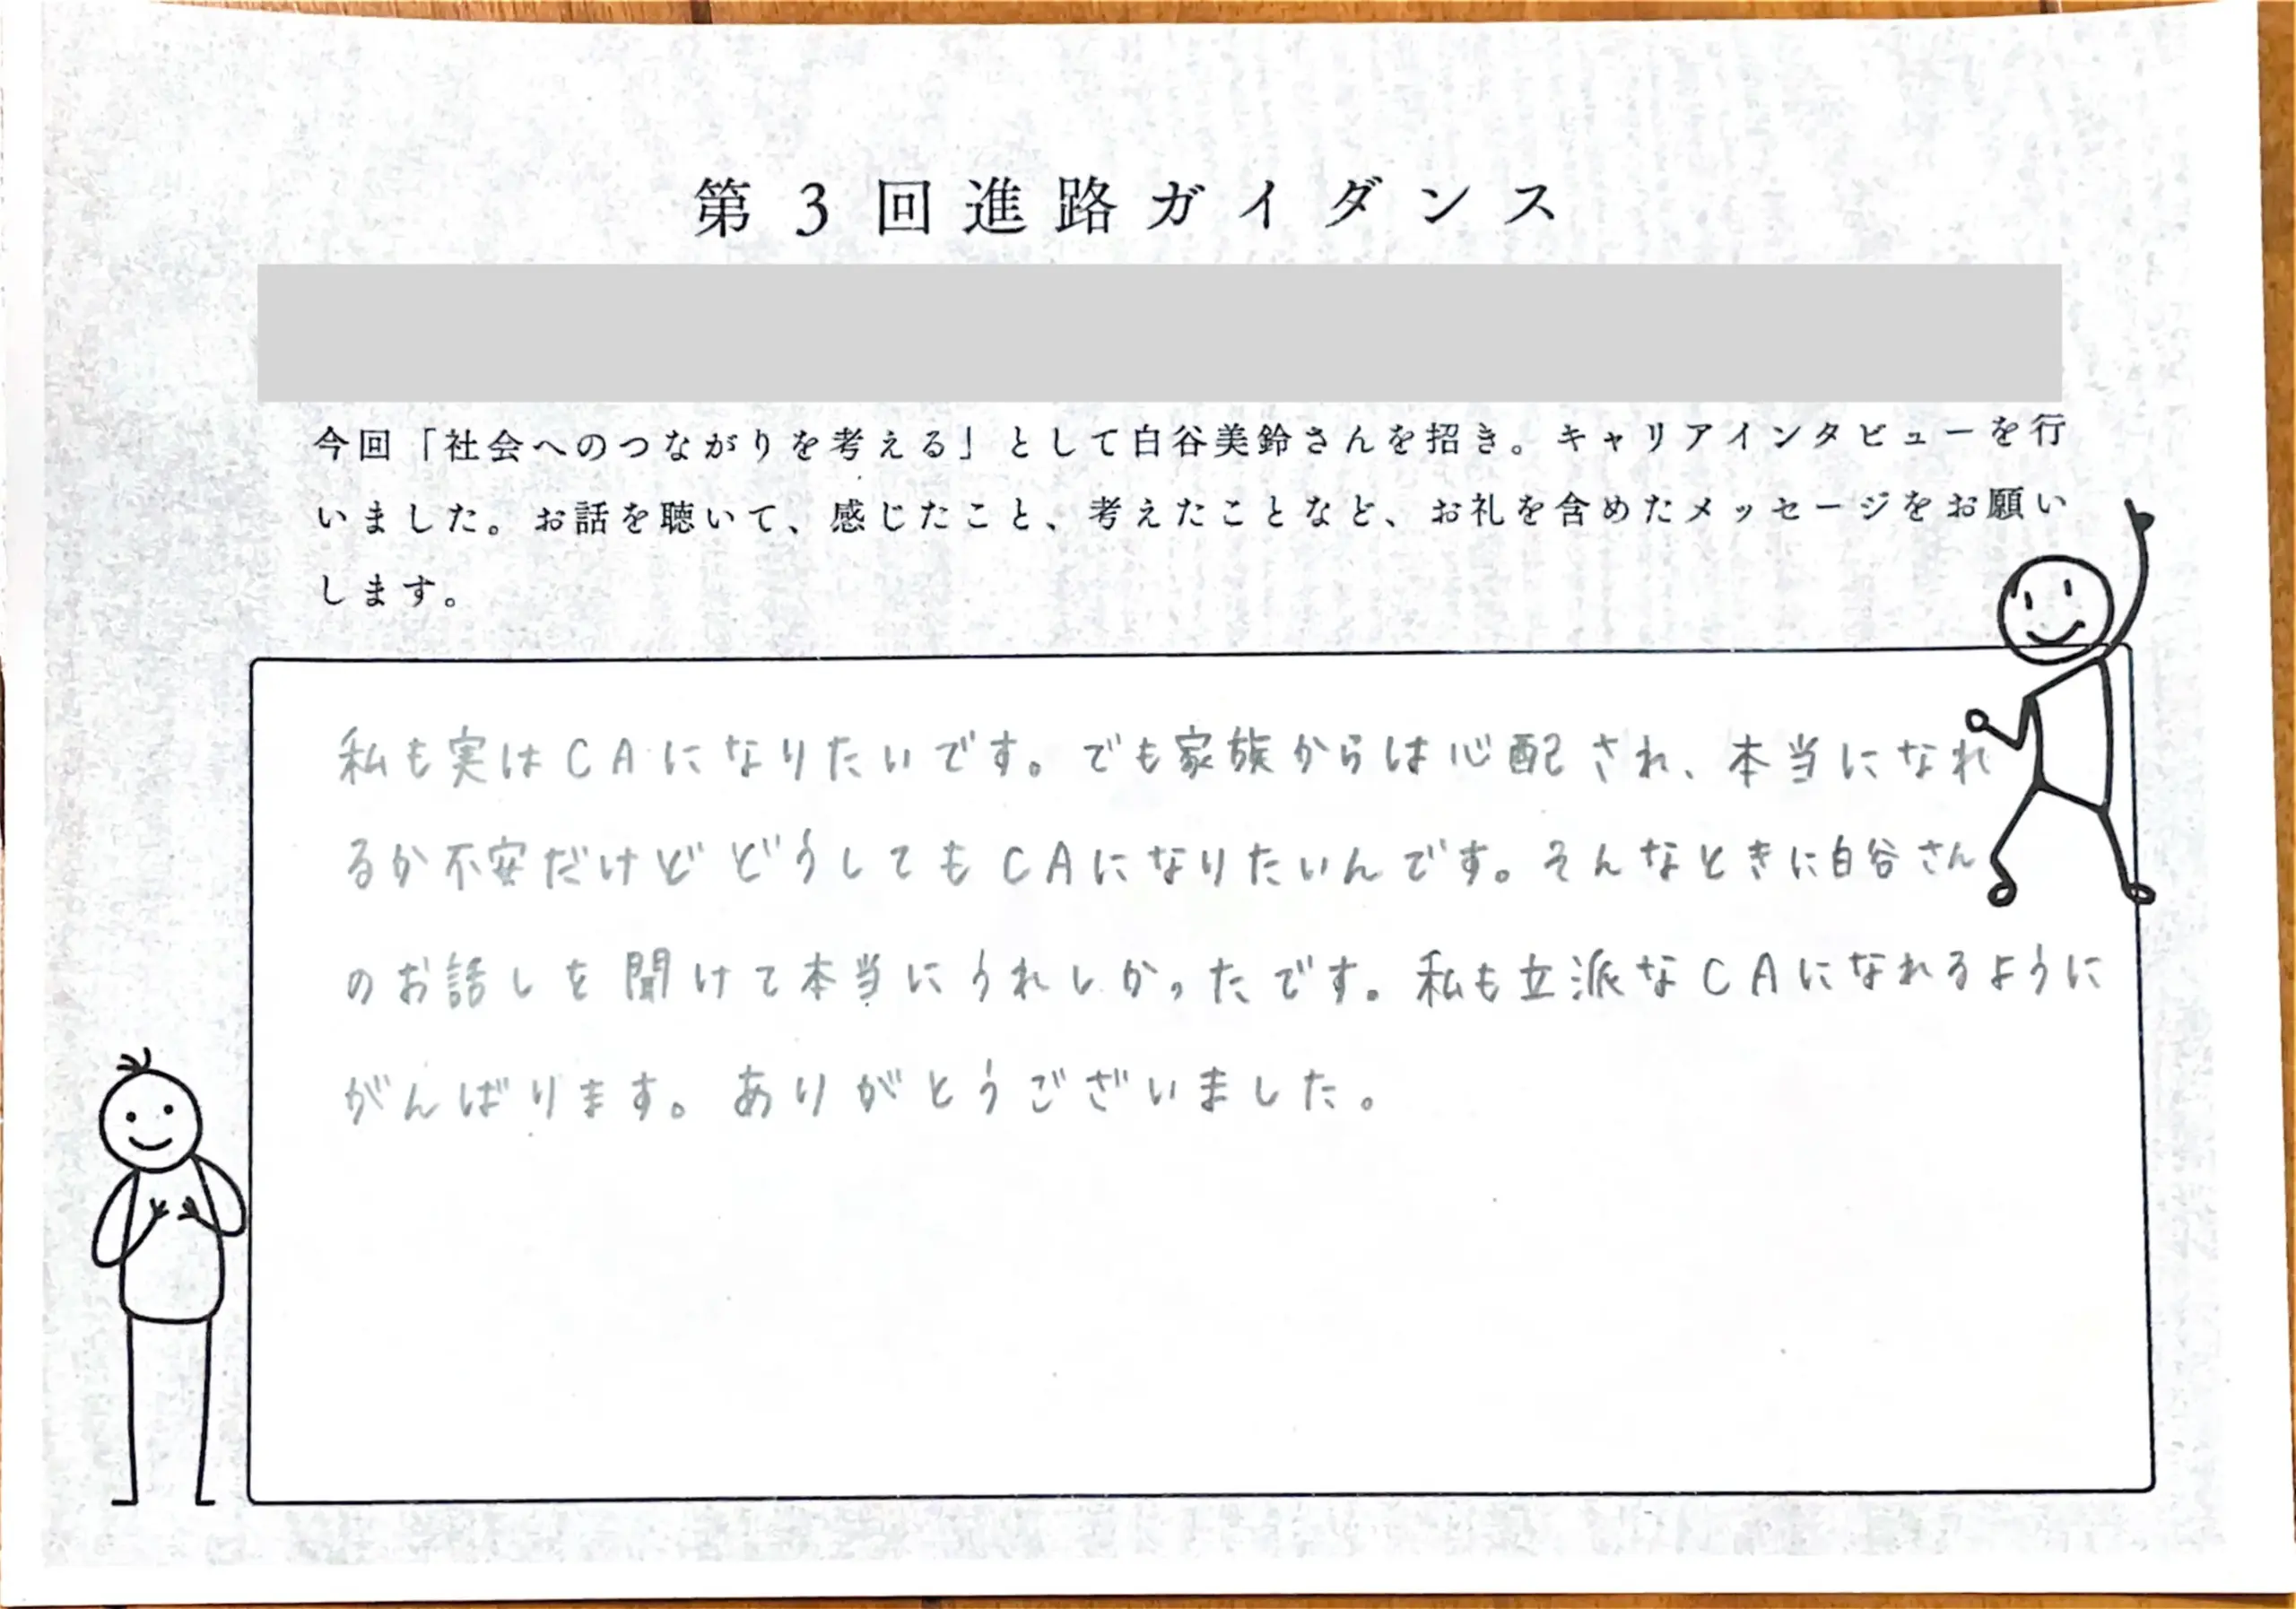 第3回進路ガイダンス
今回「社会へのつながりを考える」として白谷美鈴さんを招き。キャリアインタビューを行
いました。お話を聴いて、感じたこと、考えたことなど、お礼を含めたメッセージをお願い
します。
私も実はCAになりたいです。でも家族からは心配され、本当になれ
るか不安だけどどうしてもCAになりたいんです。そんなときに白谷さん
のお話しを聞けて本当にうれしかったです。私も立派なCAになれるように
がんばります。ありがとうございました。